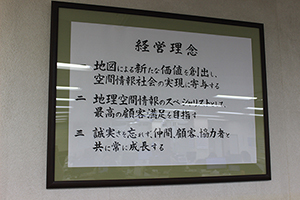 経営理念
一 地図による新たな価値を創出し、
空間情報社会の実現に寄与する
二 地理空間情報のスペシャリストとして、
最高の顧客満足を目指す
三 誠実さを忘れず、仲間、顧客、協力者と
共に常に成長する